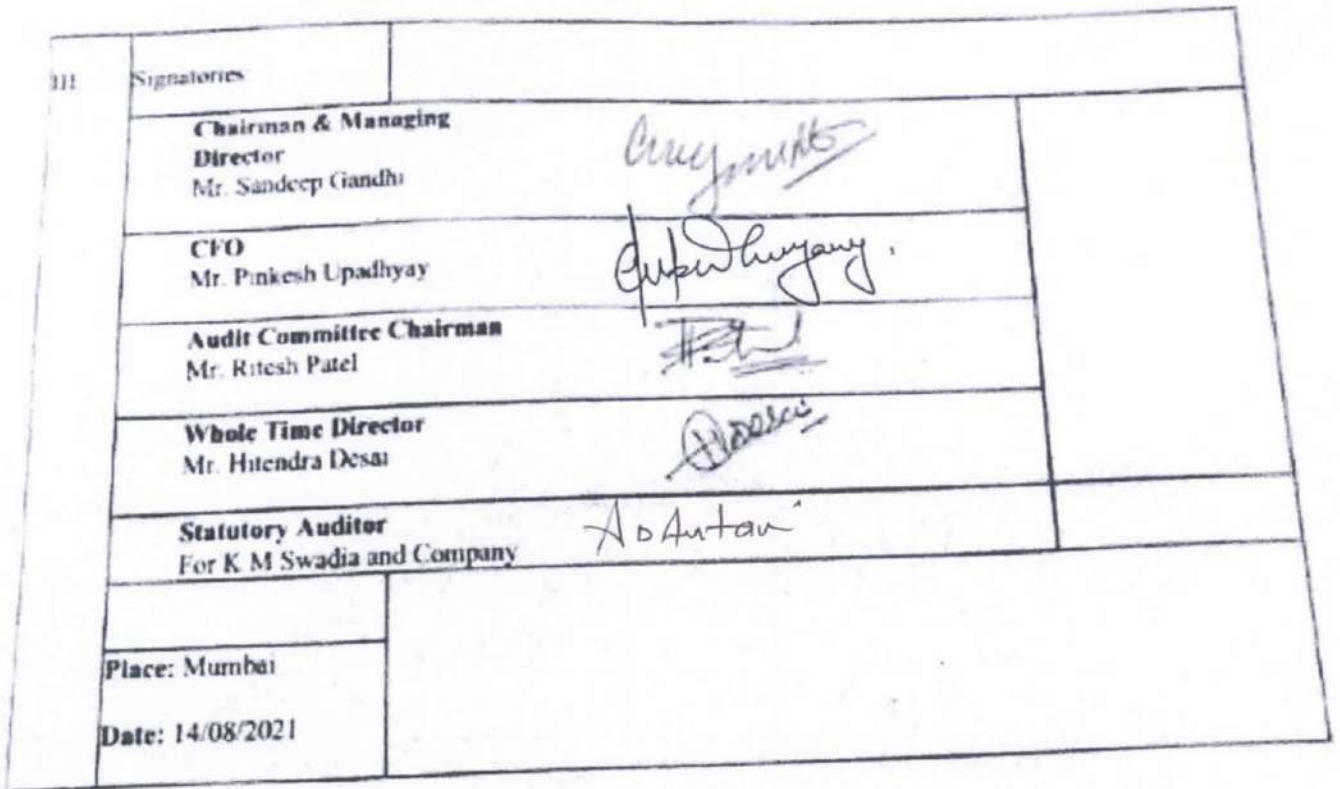 III Signatories
Chairman & Managing
Director
Mr. Sandeep Gandhi
CFO
Mr. Pinkesh Upadhyay
Audit Committee Chairman
Mr. Ritesh Patel
Whole Time Director
Mr. Hitendra Desai
Statutory Auditor
For K M Swadia and Company
Place: Mumbai
Date: 14/08/2021